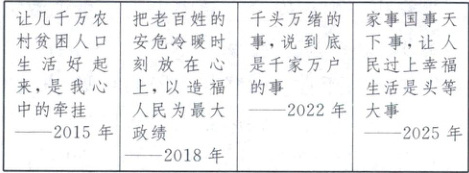 让几千万农
村贫困人口
生活好起
来,是我心
中的牵挂
——2015 年
把老百姓的
安危冷暖时
刻放在心
上,以造福
人民为最大
政绩
——2018 年
千头万绪的
事,说到底
是千家万户
的事
——2022 年
家事国事天
下事,让人
民过上幸福
生活是头等
大事
——2025 年